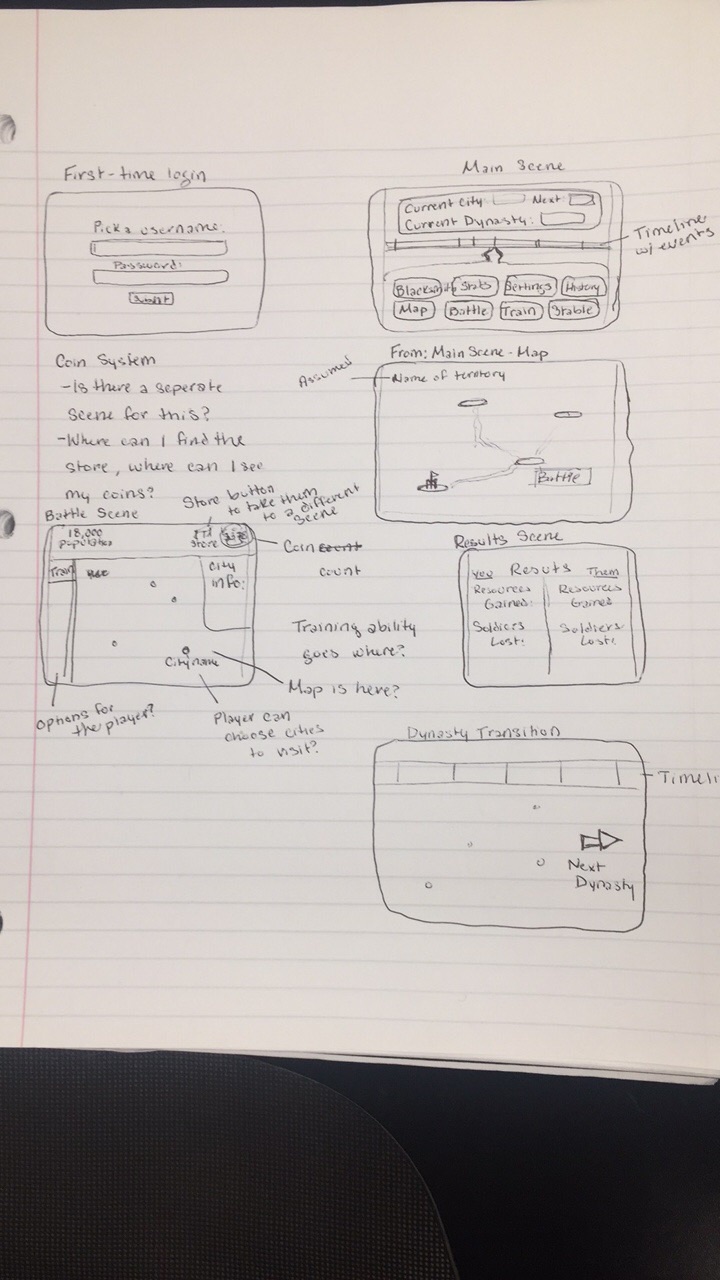 First-time login
Pick a username:
Password:
Submit
Main Scene
Current City
Next
Current Dynasty:
Timeline
w/ events
Stats
Settings
History
Map
Battle
Train
Stable
Coin System
-Is there a seperate
scene for this?
-Where can I find the
store, where can I see
my coins?
From: Main Scene - Map
Assumed
Name of territory
Battle
Battle Scene
Store button
to take them
to a different
scene
18,000
Population
Store
Coin count
count
Train
City
info:
City name
Training ability
goes where?
Map is here?
Options for
the player?
Player can
choose cities
to visit?
Results Scene
Resuts
You
Them
Resources
Gained:
Resources
Gained
Soldiers
Lost:
Soldiers
Lost:
Dynasty Transition
Timeli
Next
Dynasty